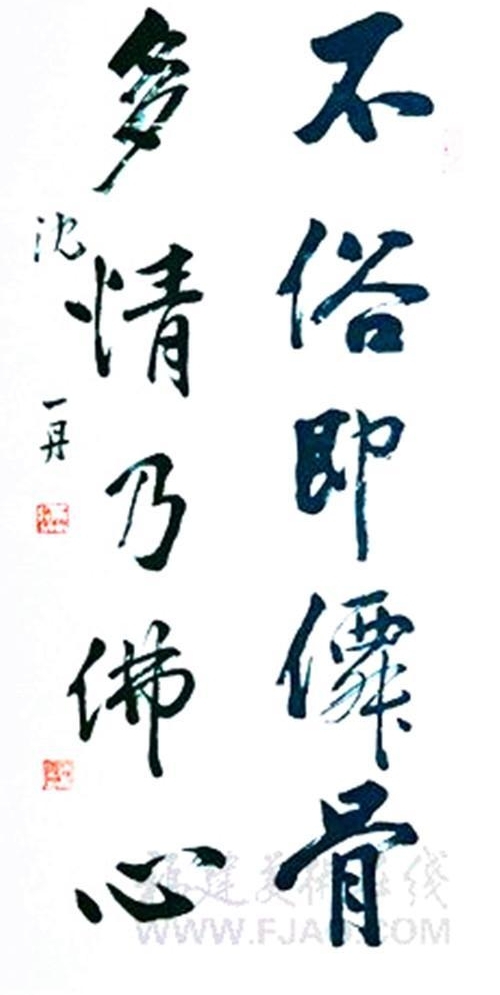 不俗即僊骨
多情乃佛心
沈一丹
福建美術在线
WWW.FJAO.COM